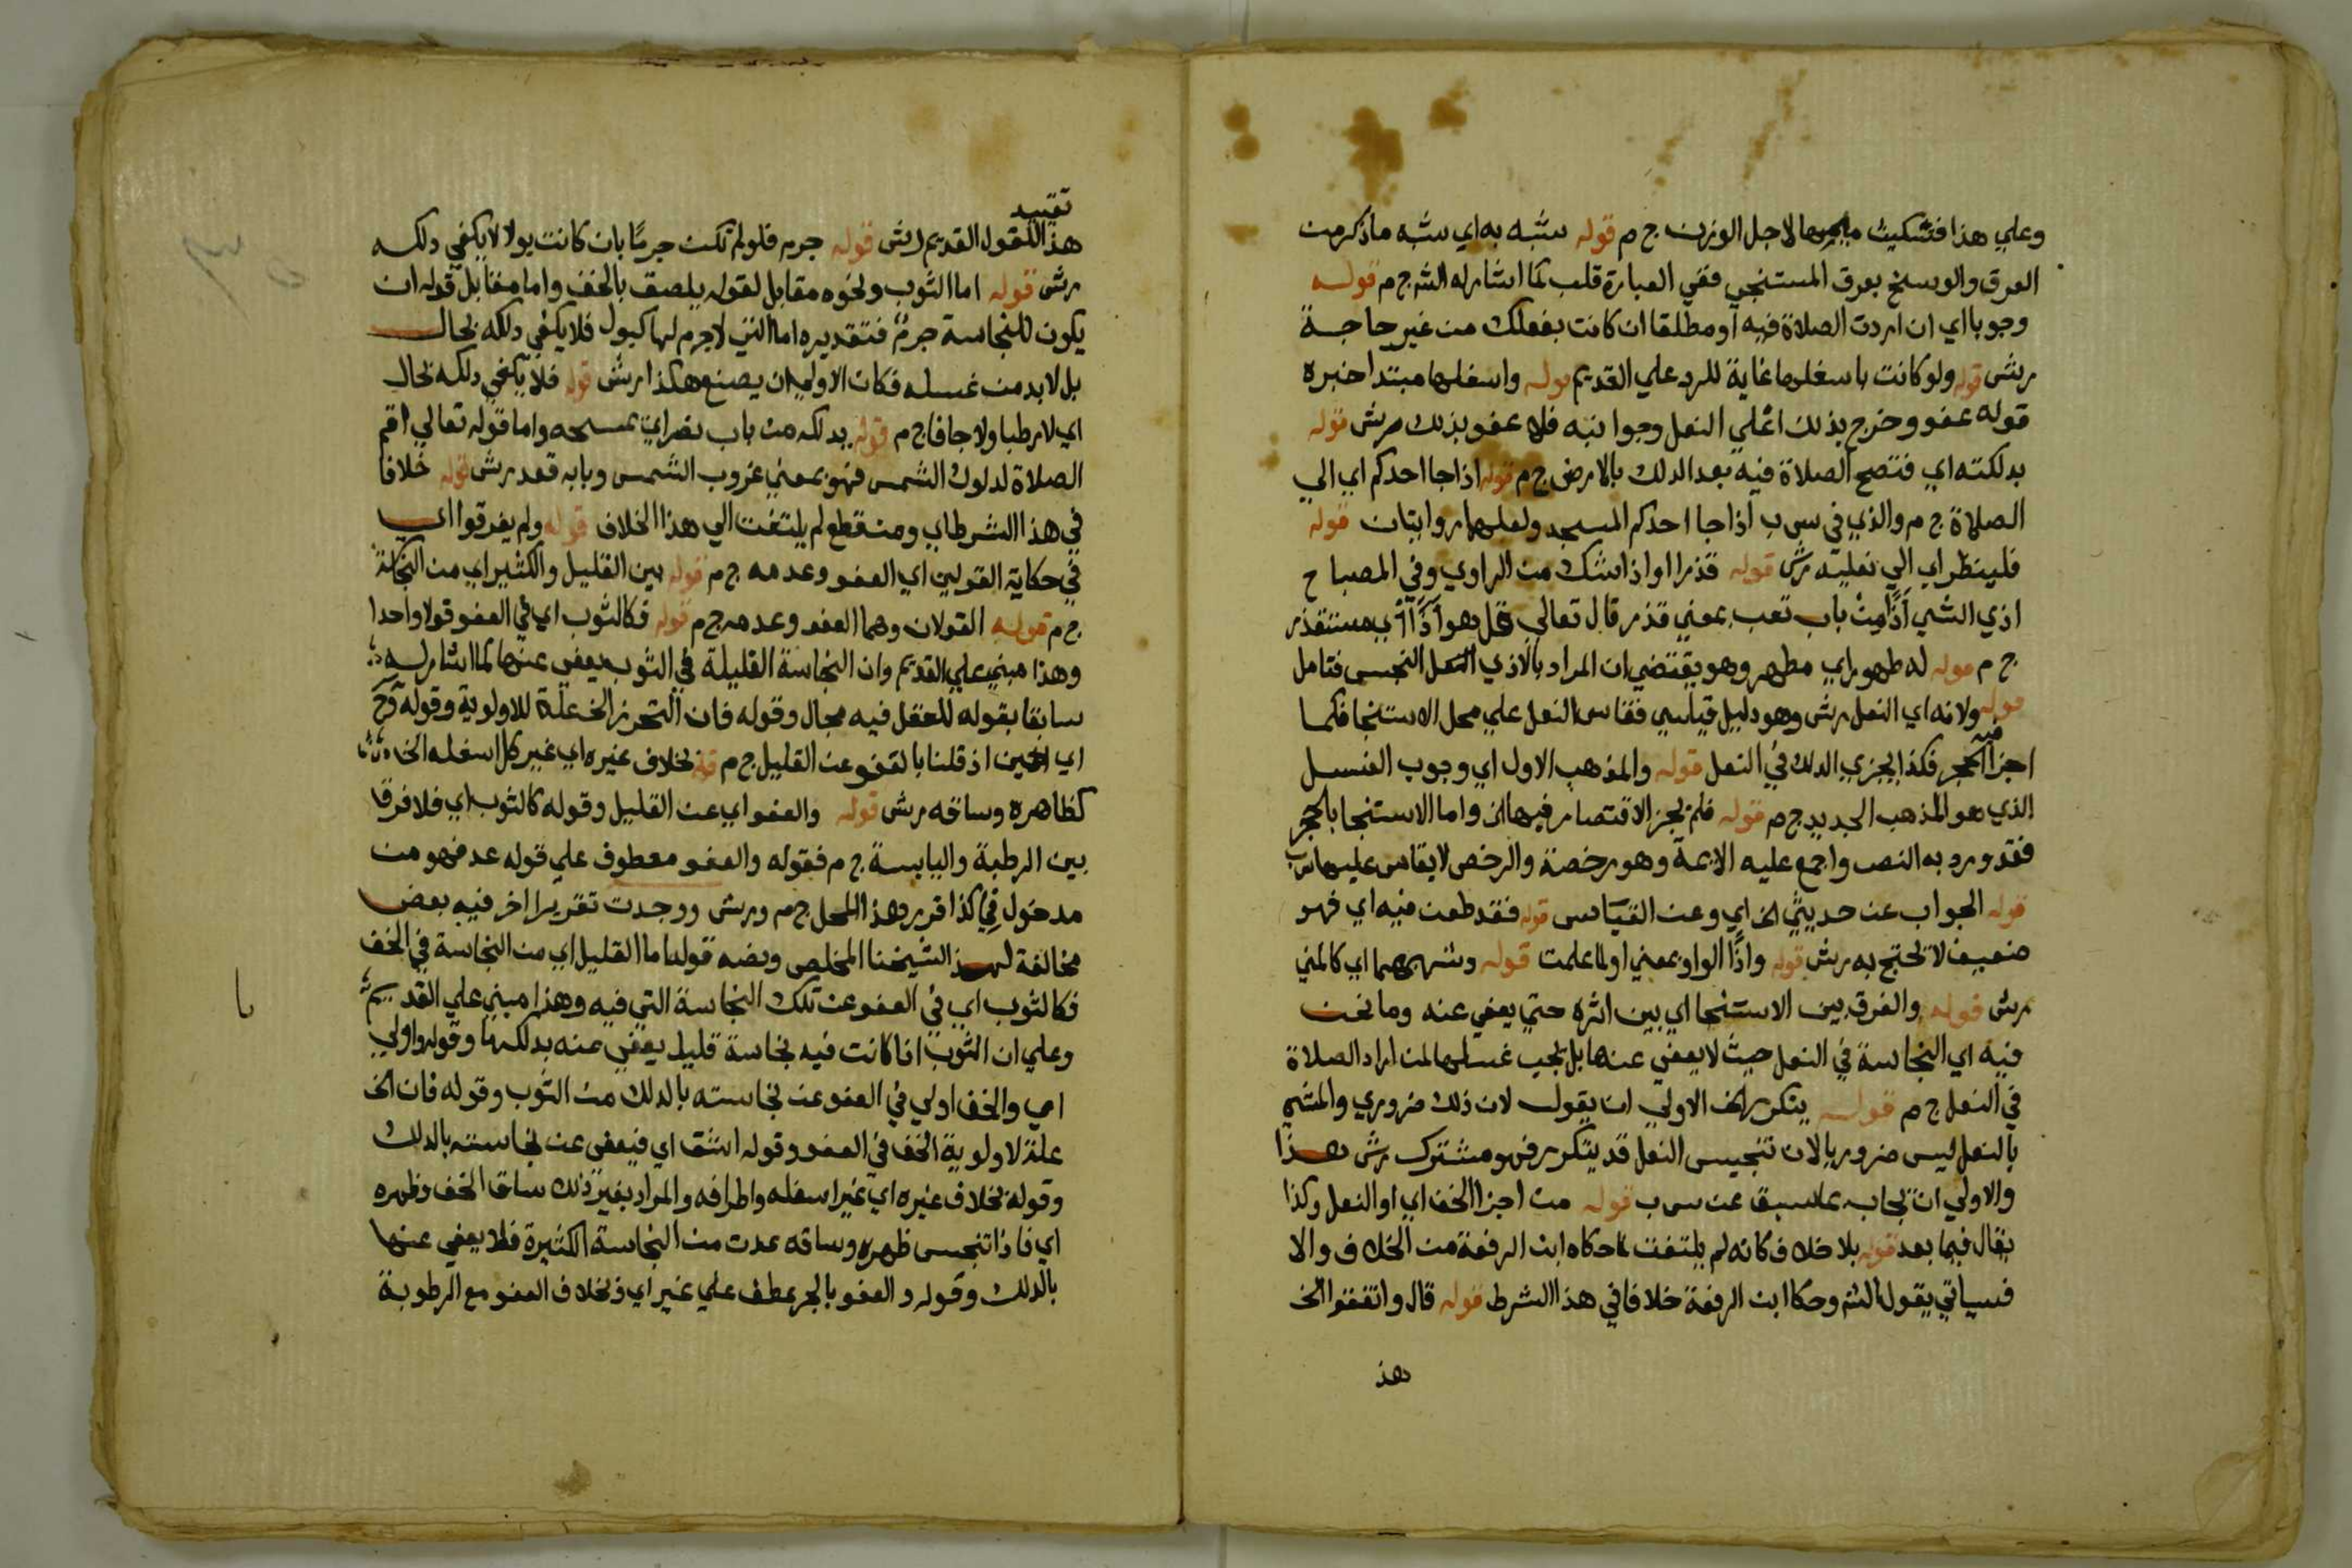 وعلي هذا فتسكين لاجل الوزن ج م قوله شبه به اي شبه ما ذكر من
العرق والوسخ بعرق المستنجي ففي العبارة قلب كما اشار له الش ج م قوله
وجوبا اي ان اردت الصلاة فيه او مطلقا ان كانت بفعلك من غير حاجة
رش قوله ولو كانت باسفلها غاية للرد علي القديم قوله واسفلها مبتدا خبره
قوله عفو وخرج بذلك اعلي النعل وجوانبه فلا عفو بذلك رش قوله
بدلكته اي فتصح الصلاة فيه بعد الدلك بالارض ج م قوله اذا جا احدكم اي الي
الصلاة ج م والذي في س ب اذا جا احدكم المسجد ولعلهما روايتان قوله
فلينظر اي الي نعليه رش قوله قذرا او اذا شك من الراوي وفي المصباح
اذي الشي اذا من باب تعب بمعني قذر قال تعالي قل هو اذا اي مستقذر
ج م قوله له طهور اي مطهر وهو يقتضي ان المراد بالاذي النعل النجس فتامل
قوله ولانه اي النعل رش وهو دليل قياسي فقاس النعل علي محل الاستنجا فكما
اجزا الحجر فيه فكذا يجزي الدلك في النعل قوله والمذهب الاول اي وجوب الغسل
الذي هو المذهب الجديد ج م قوله فلم يجز الاقتصار فيها الخ واما الاستنجا بالحجر
فقد ورد به النص واجمع عليه الايمة وهو رخصة والرخص لا يقاس عليها س ب
قوله الجواب عن حديثي الخ اي وعن القياس قوله فقد طعن فيه اي فهو
ضعيف لا تحتج به رش قوله واذا الواو بمعني او لما علمت قوله وشبههما اي كالمني
رش قوله والفرق بين الاستنجا اي بين اثره حتي يعفي عنه وما نحن
فيه اي النجاسة في النعل حيث لا يعفي عنها بل يجب غسلها لمن اراد الصلاة
في النعل ج م قوله يتكرر الخ الاولي ان يقول لان ذلك ضروري والمشي
بالنعل ليس ضروريا لان تنجيس النعل قد يتكرر فهو مشترك رش هذا
والاولي ان يجاب بما سبق عن س ب قوله من اجزا الخف اي او النعل وكذا
يقال فيما بعد قوله بلا خلاف كانه لم يلتفت لما حكاه ابن الرفعة من الخلاف والا
فسياتي يقول الش وحكا ابن الرفعة خلافا في هذا الشرط قوله قال واتفقوا الخ
هذ
تقييد
هذا القول القديم رش قوله جرم فلو لم تكن جرما بان كانت بولا لا يكفي دلكه
رش قوله اما الثوب ونحوه مقابل لقوله يلصق بالخف واما مقابل قوله ان
يكون للنجاسة جرم فتقديره اما التي لا جرم لها كبول فلا يكفي دلكه بحال
بل لا بد من غسله فكان الاولي ان يصنع هكذا رش قوله فلا يكفي دلكه بحال
اي لا رطبا ولا جافا ج م قوله بدلكه من باب نصر اي بمسحه واما قوله تعالي اقم
الصلاة لدلوك الشمس فهو بمعني غروب الشمس وبابه قعد رش قوله خلافا
في هذا الشرط اي ومن قطع لم يلتفت الي هذا الخلاف قوله ولم يفرقوا اي
في حكاية القولين اي العفو وعدمه ج م قوله بين القليل والكثير اي من النجاسة
ج م قوله القولان وهما العفو وعدمه ج م قوله فكالثوب اي في العفو قولا واحدا
وهذا مبني علي القديم وان النجاسة القليلة في الثوب يعفي عنها كما اشار له
سابقا بقوله للعقل فيه مجال وقوله فان التحرز الخ علة للاولوية وقوله وح
اي الحين اذ قلنا بالعفو عن القليل ج م قوله بخلاف غيره اي غير كل اسفله الخ
كظاهره وساقه رش قوله والعفو اي عن القليل وقوله كالثوب اي فلا فرق
بين الرطبة واليابسة ج م فقوله والعفو معطوف علي قوله عد فهو من
مدخول في كذا قرر هذا المحل ج م ورش ووجدت تقريرا اخر فيه بعض
مخالفة لهذا لشيخنا المخلص ونصه قوله اما القليل اي من النجاسة في الخف
فكالثوب اي في العفو عن تلك النجاسة التي فيه وهذا مبني علي القديم
وعلي ان الثوب اذا كانت فيه نجاسة قليل يعفي عنه بدلكها وقوله واولي
اي والخف اولي في العفو عن نجاسته بالدلك من الثوب وقوله فان الخ
علة لاولوية الخف في العفو وقوله اشق اي فيعفي عن نجاسته بالدلك
وقوله بخلاف غيره اي غير اسفله واطرافه والمراد بغير ذلك ساق الخف وظهره
اي فاذا تنجس ظهره وساقه عدت من النجاسة الكثيرة فلا يعفي عنها
بالدلك وقوله والعفو بالجر عطف علي غير اي وبخلاف العفو مع الرطوبة